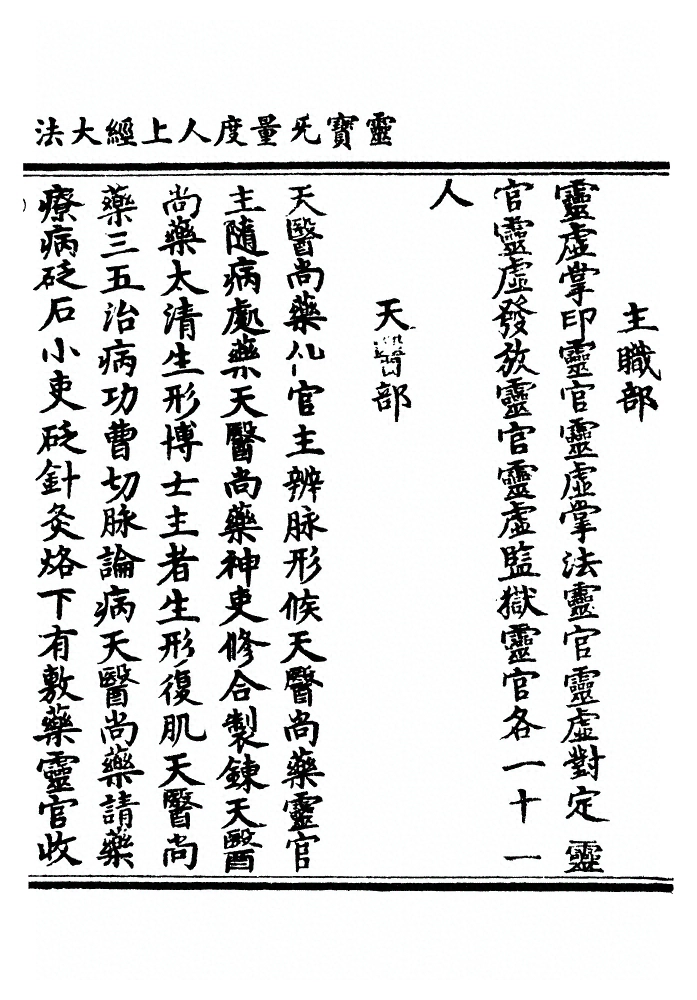 靈寶旡量度人上經大法
主職部
靈虛掌印靈官靈虛掌法靈官靈虛對定靈
官靈虛發放靈官靈虛監獄靈官各一十一
人
天醫部
天醫尚藥仙官主辨脉形候天醫尚藥靈官
主隨病處藥天醫尚藥神吏修合製鍊天醫
尚藥太清生形博士主者生形復肌天醫尚
藥三五治病功曹切脉論病天醫尚藥請藥
療病砭石小吏砭針灸烙下有敷藥靈官收